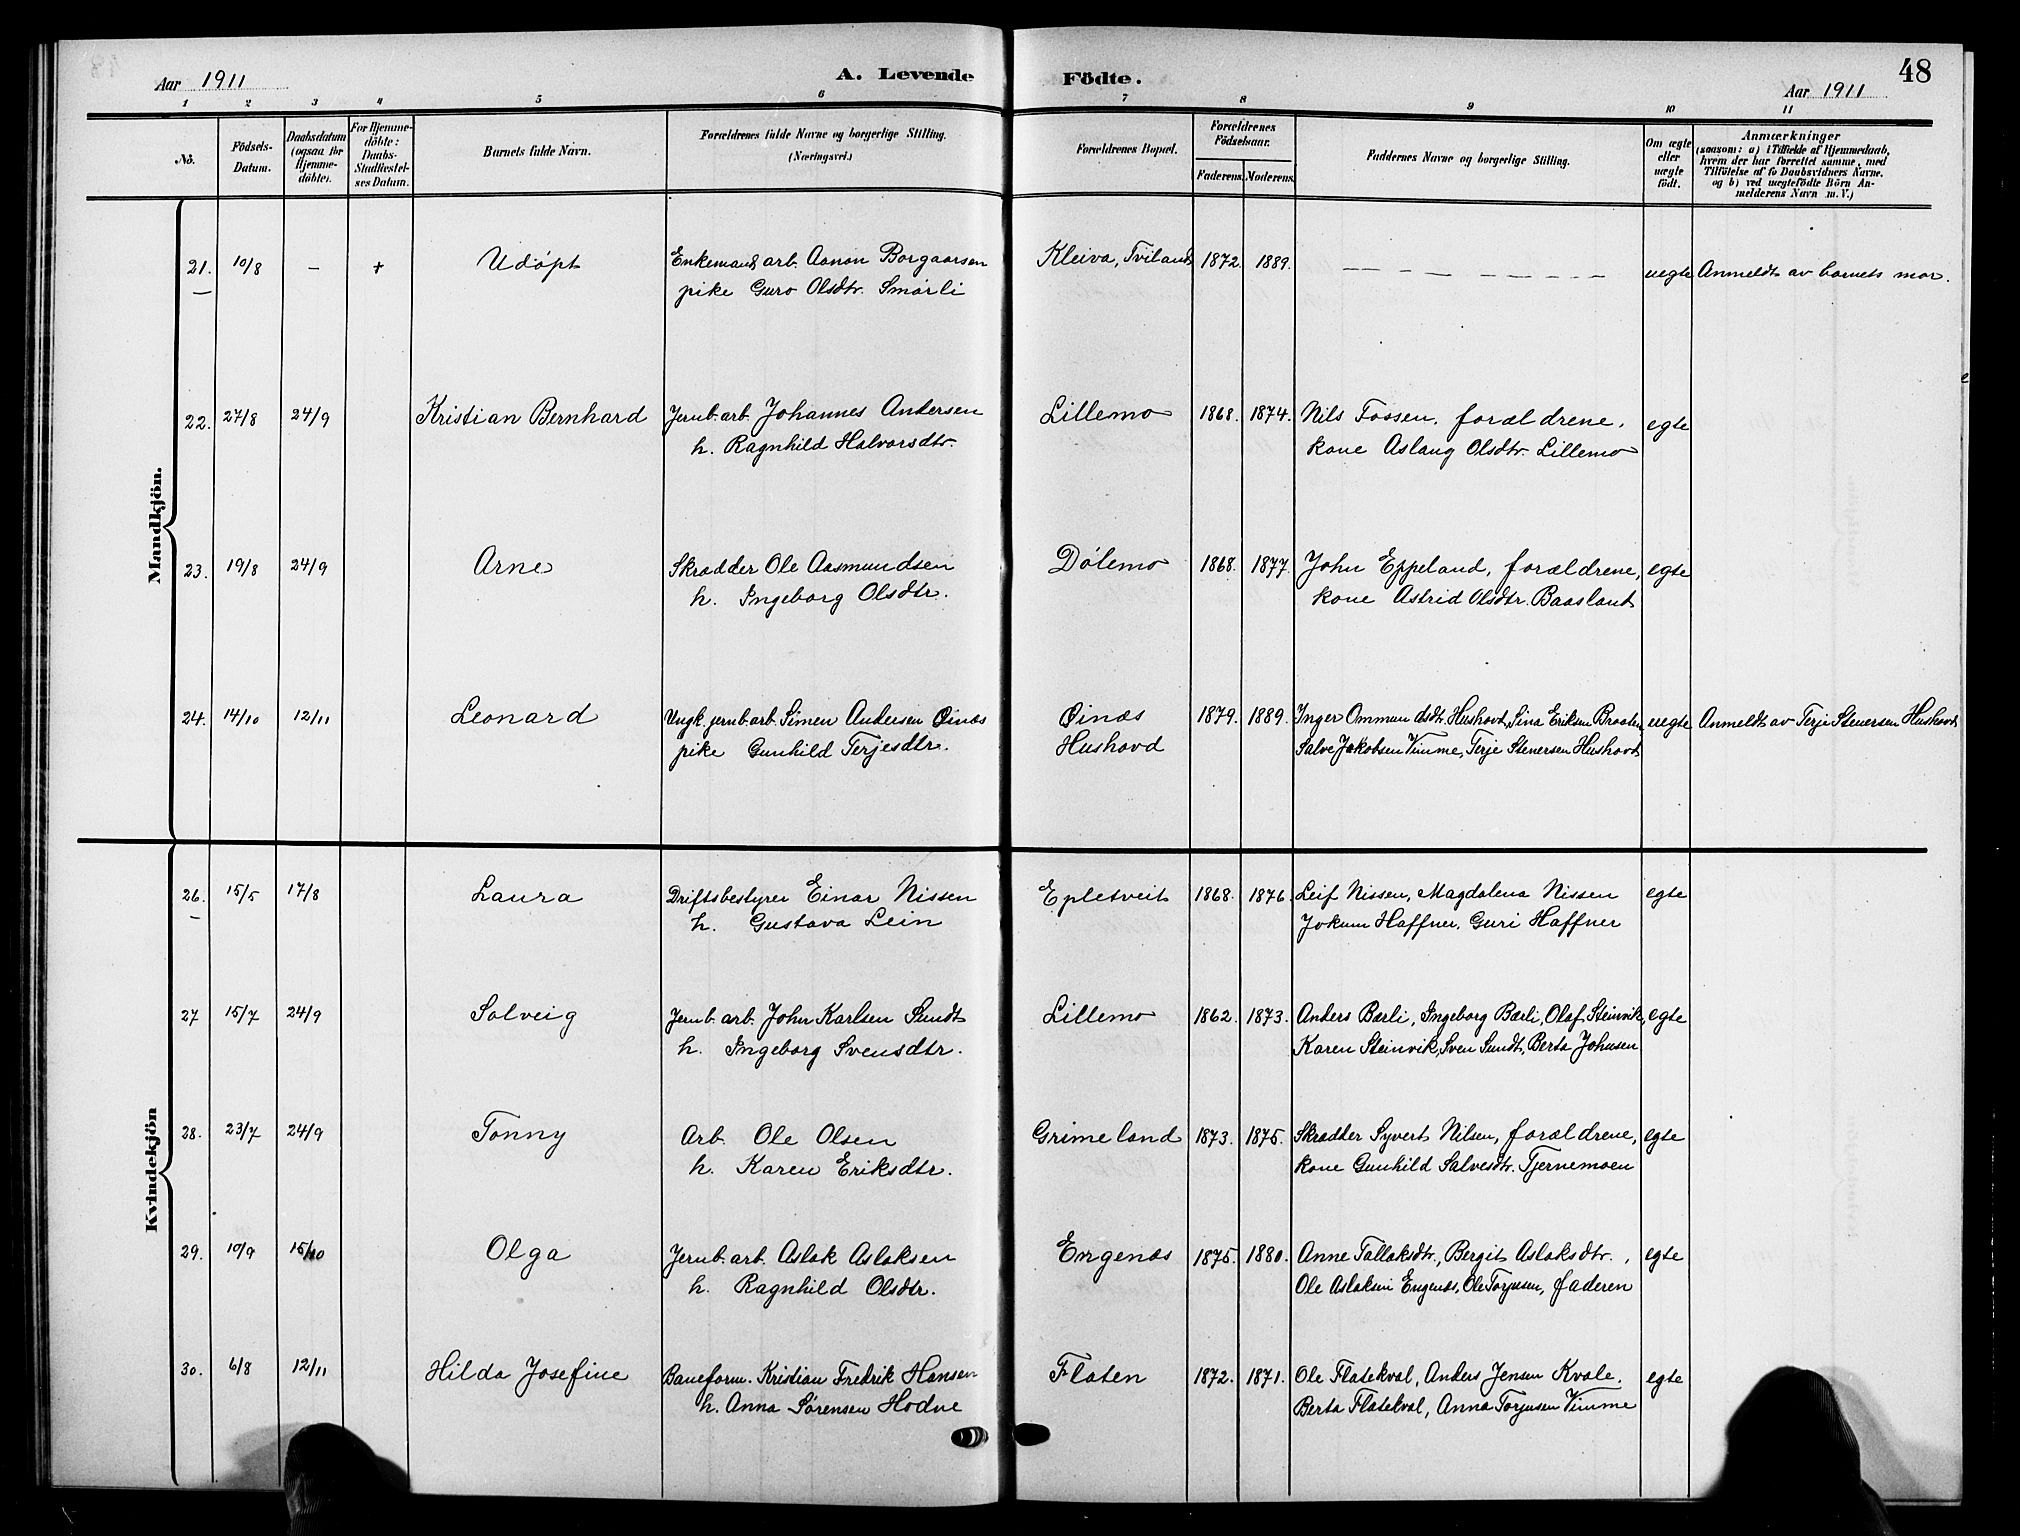 48
Aar 1911 A. Levende Födte. Aar 1911
1 2 3 4 5 6 7 8 9 10 11
No. Födsels-Datum. Daabsdatum (ogsaa for Hjemme-döbte). For Hjemme-döbte: Daabs-Stadfæstel-ses Datum. Barnets fulde Navn. Forældrenes fulde Navne og borgerlige Stilling. (Næringsvei.) Forældrenes Bopæl. Forældrenes Födselsaar. Faderens. Moderens. Faddernes Navne og borgerlige Stilling. Om ægte eller uægte födt. Anmærkninger (saasom: a) i Tilfælde af Hjemmedaab, hvem der har forrettet samme, med Tilföielse af to Daabsvidners Navne. og b) ved uægtefödte Börn An-melderens Navn m. V.)
Mandkjön.
21. 10/8 — + Udöpt Enkemand arb. Aanon Borgaarsen Kleiva, Tviland 1872. 1889. — — — — — — — uegte Anmeldt av barnets mor.
pike Guro Olsdtr. Smørli
22. 27/8 24/9 Kristian Bernhard Jernb.arb. Johannes Andersen Lillemo 1868. 1874. Nils Fossen, forældrene, egte
h. Ragnhild Halvorsdtr. kone Aslaug Olsdtr. Lillemo
23. 19/8 24/9 Arne Skrædder Ole Aasmundsen Dølemo 1868. 1877. John Eppeland, forældrene, egte
h. Ingeborg Olsdtr. kone Astrid Olsdtr. Baasland
24. 14/10 12/11 Leonard Ungk. jernb.arb. Simen Andersen Øinæs Øinæs 1879. 1889. Inger Ommundsdtr. Hushovd, Sina Eriksen Braaten, uegte Anmeldt av Terje Stenersen Hushovd
pike Gunhild Terjesdtr. Hushovd Salve Jakobsen Vimme, Terje Stenersen Hushovd
Kvindekjön
26. 15/5 17/8 Laura Driftsbestyrer Einar Nissen Epletveit 1868. 1876. Leif Nissen, Magdalena Nissen egte
h. Gustava Lein Jokum Haffner, Guri Haffner
27 15/7 24/9 Solveig Jernb.arb. John Karlsen Sundt Lillemo 1862. 1873. Anders Bærli, Ingeborg Bærli, Olaf Steinvik, egte
h. Ingeborg Svensdtr. Karen Steinvik, Sven Sundt, Berta Johnsen
28. 23/7 24/9 Tonny Arb. Ole Olsen Grimeland 1873. 1875. Skrædder Syvert Nilsen, forældrene, egte
h. Karen Eriksdtr. kone Gunhild Salvesdtr. Tjernemoen
29. 10/9 15/10 Olga Jernb.arb. Aslak Aslaksen Engenæs 1875. 1880. Anne Tallaksdtr., Bergit Aslaksdtr., egte
h. Ragnhild Olsdtr. Ole Aslaksen Engenæs, Ole Torjusen, faderen
30. 6/8 12/11 Hilda Josefine Baneform. Kristian Fredrik Hansen Flaten 1872. 1871. Ole Flatekval, Anders Jensen Kvale, egte
h. Anna Sørensen Hodne Berta Flatekval, Anna Torjusen Vimme